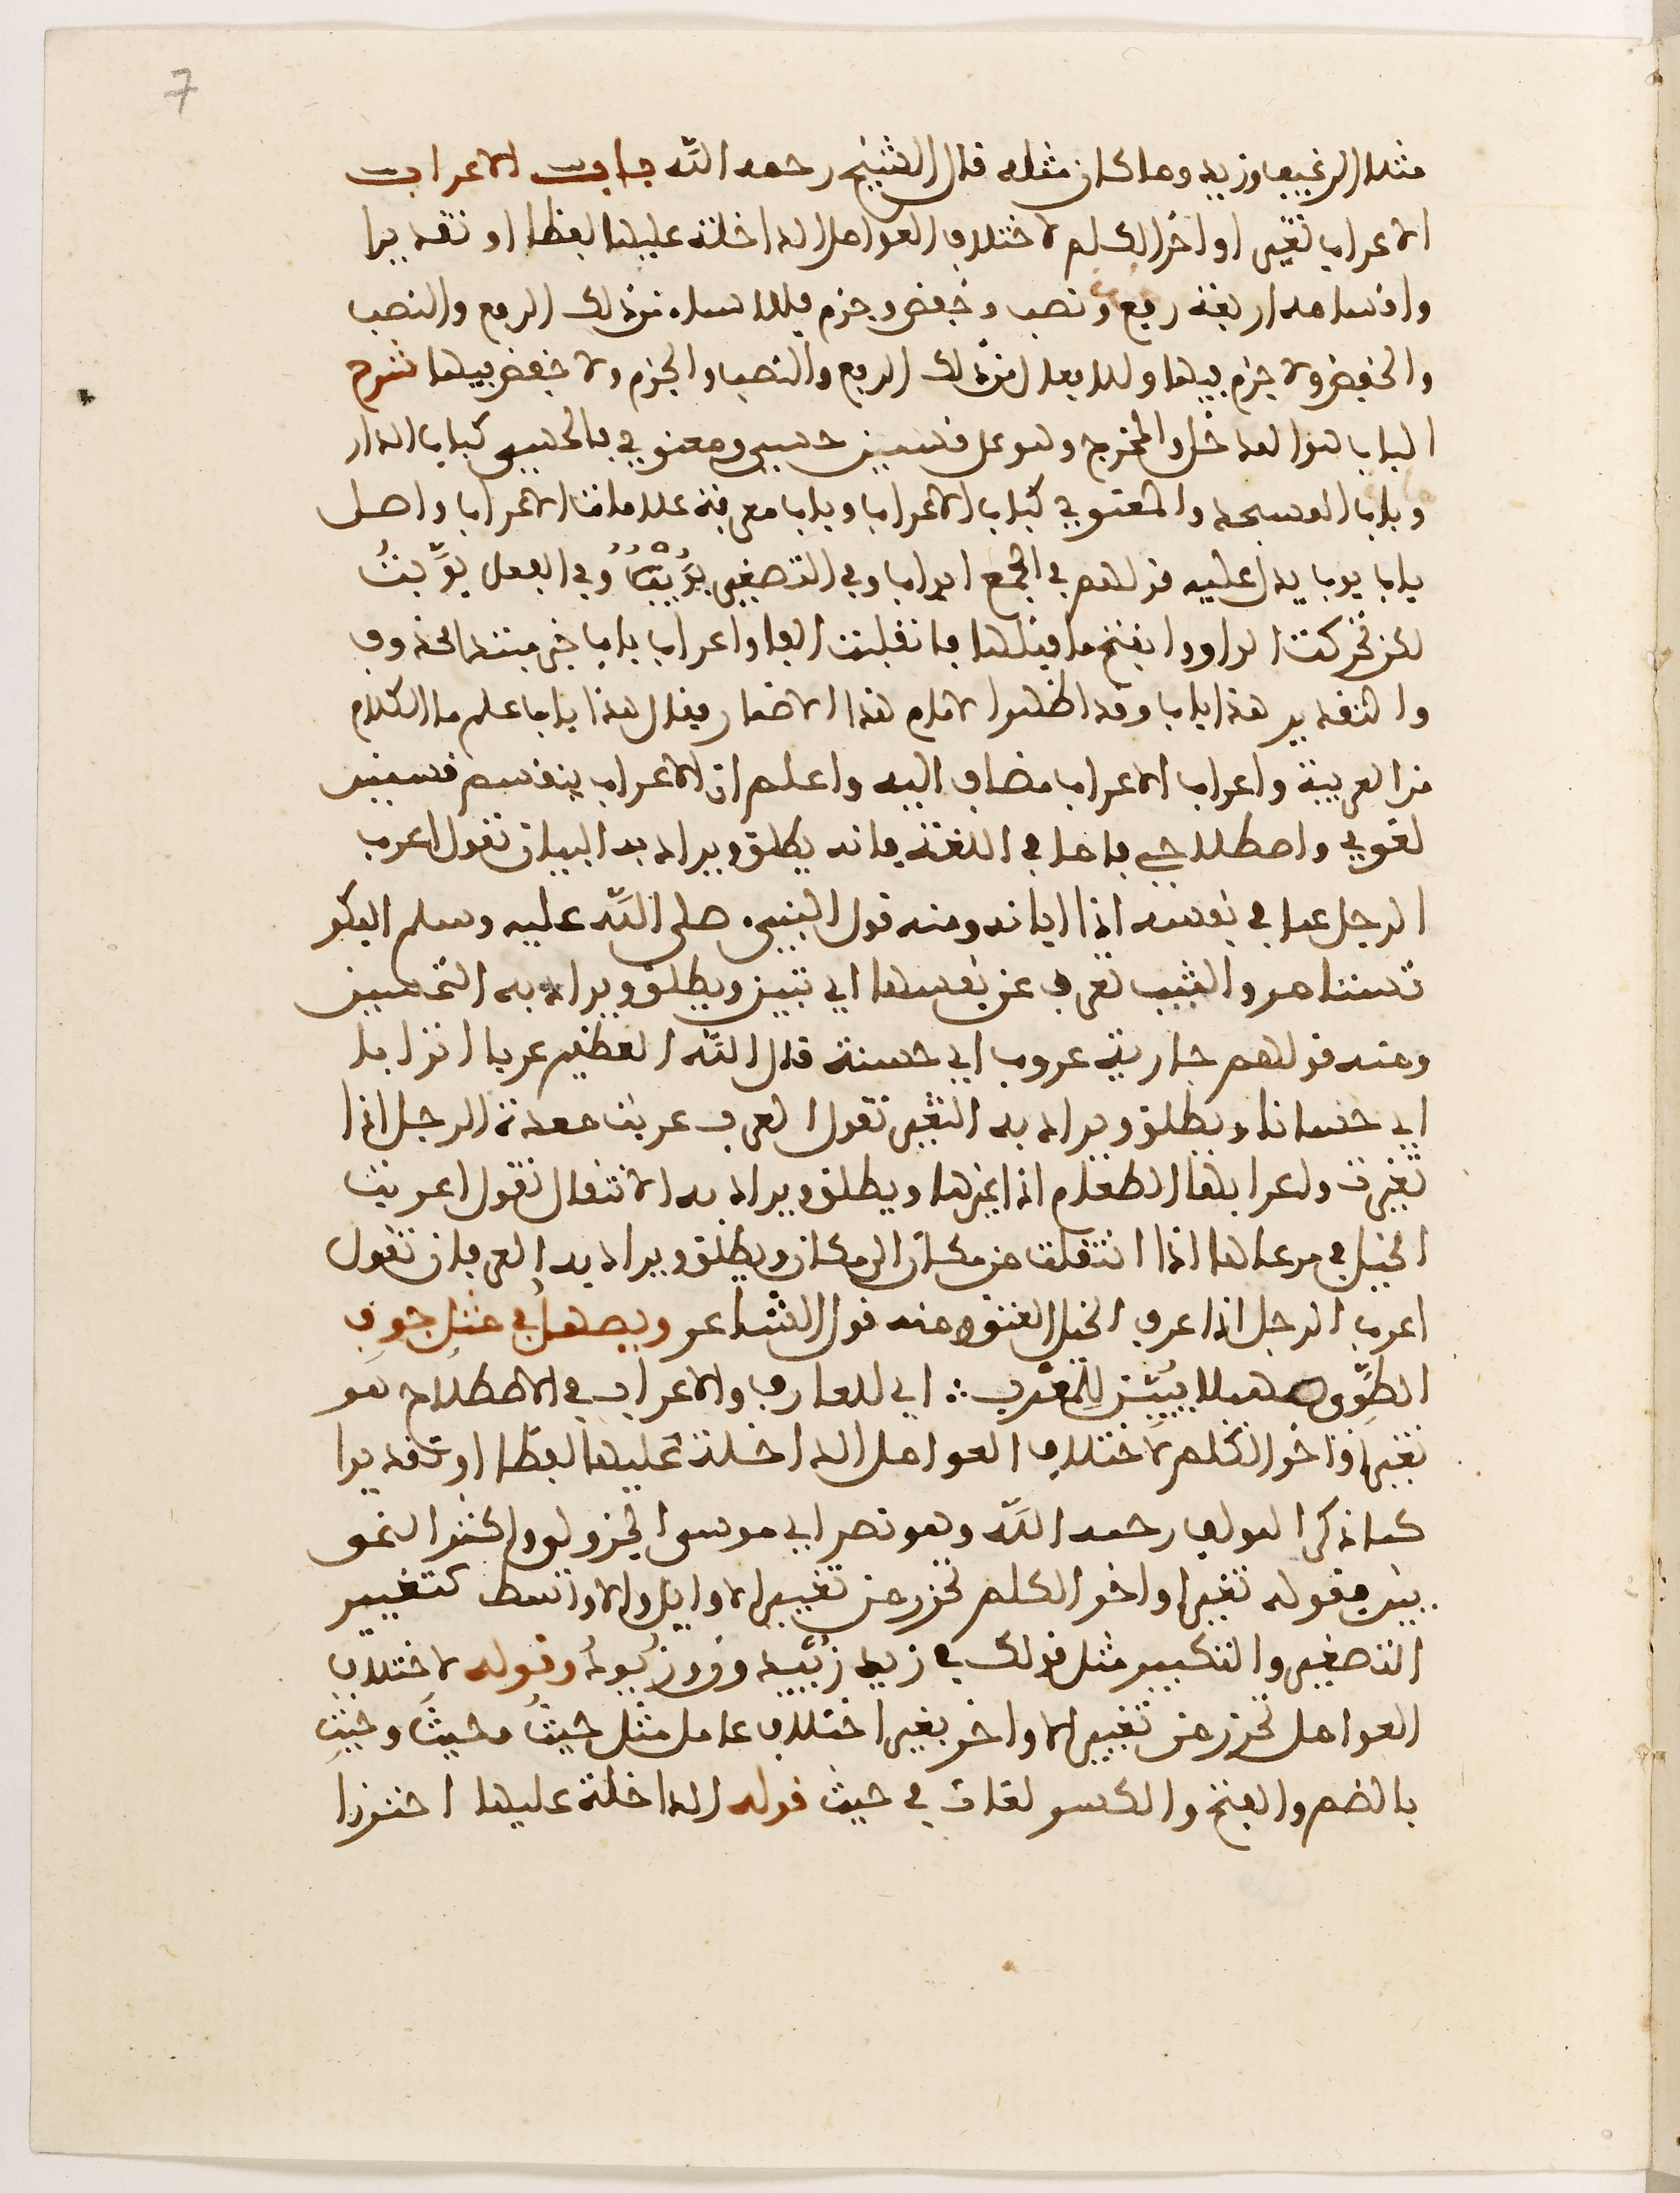 7
مثل الرغيف وزيد وما كان مثله قال الشيخ رحمه الله باب الاعراب
الاعراب تغيير اواخر الكلم لاختلاف العوامل الداخلة عليها لفظا او تقديرا
واقسامه اربعة رفع ونصب وخفض وجزم فللاسماء من ذلك الرفع والنصب
والخفض ولا جزم فيها وللافعال من ذلك الرفع والنصب والجزم ولا خفض فيها شرح
الباب هو المدخل والمخرج وهو على قسمين حسي ومعنوي فالحسي كباب الدار
وباب المسجد والمعنوي كباب الاعراب وباب معرفة علامات الاعراب واصل
باب بوب يدل عليه قولهم في الجمع ابواب وفي التصغير بُوَيْبٌ وفي الفعل بَوَّبتُ
لكن تحركت الواو وانفتح ما قبلها فانقلبت الفا واعراب باب خبر مبتدا محذوف
والتقدير هذا باب وقد اظهر الامام هذا الاضمار فقال هذا باب علم ما الكلام
من العربية واعراب الاعراب مضاف اليه واعلم ان الاعراب ينقسم قسمين
لغوي واصطلاحي فاما في اللغة فانه يطلق ويراد به البيان تقول اعرب
الرجل عما في نفسه اذا ابانه ومنه قول النبي صلى الله عليه وسلم البكر
تستامر والثيب تعرب عن نفسها اي تبين ويطلق ويراد به التحسين
ومنه قولهم جارية عروب اي حسنة قال الله العظيم عربا اترابا
اي حسانا ويطلق ويراد به التغيير تقول العرب عربت معدة الرجل اذا
تغيرت واعرابها الطعام اذا غيرها ويطلق ويراد به الانتقال تقول اعربت
الخيل في مرعاها اذا انتقلت من مكان الى مكان ويطلق ويراد به العرفان تقول
اعرب الرجل اذا عرف الخيل العتق ومنه قول الشاعر ويصهل في مثل جوف
الطَّوِي صهيلا يبيّن للمعرب ∴ اي للعارف والاعراب في الاصطلاح هو
تغيير اواخر الكلم لاختلاف العوامل الداخلة عليها لفظا او تقديرا
كما ذكر المولف رحمه الله وهو نص ابي موسى الجزولي واكثر النحو
يين فقوله تغيير اواخر الكلم تحرز من تغيير الاوايل والاواسط كتغيير
التصغير والتكسير مثل قولك في زيد زُيَيْد وفي زيُودٌ وقوله لاختلاف
العوامل تحرز من تغيير الاواخر بغير اختلاف عامل مثل حيثُ وحيثَ وحيثِ
بالضم والفتح والكسر لغات في حيث قوله الداخلة عليها احترزا